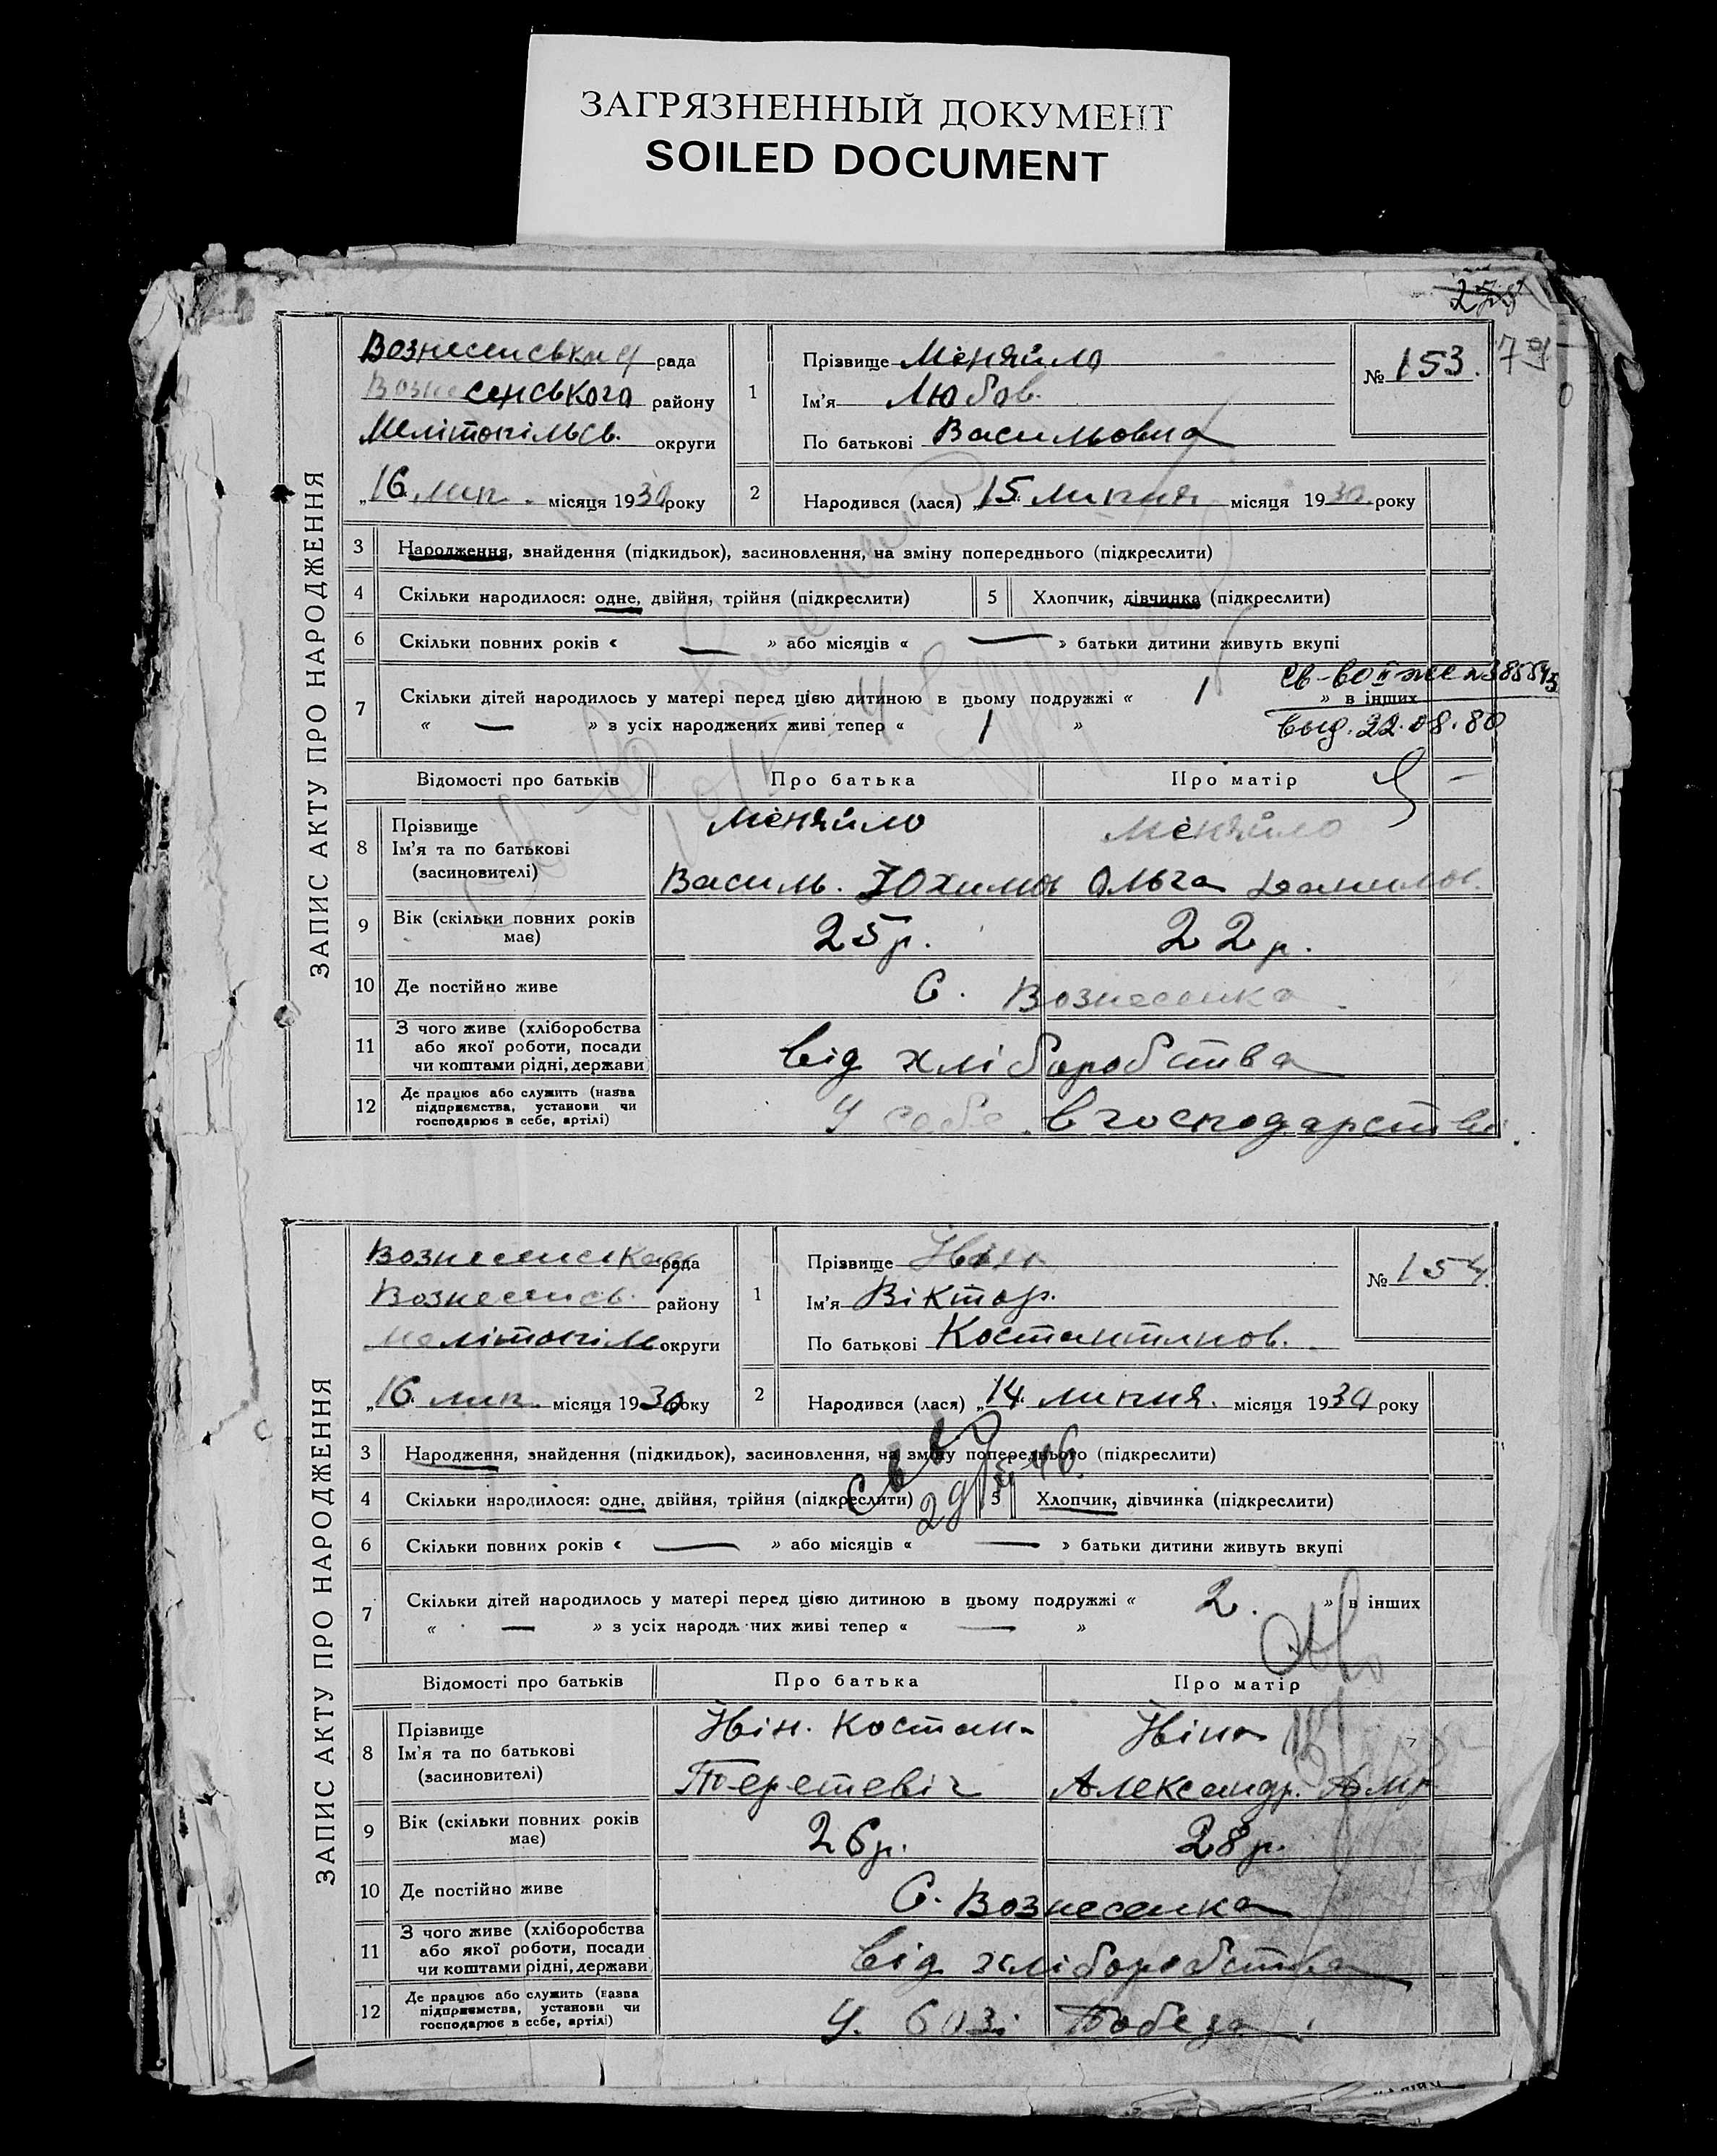 ЗАГРЯЗНЕННЫЙ ДОКУМЕНТ
SOILED DOCUMENT
79
ЗАПИС АКТУ ПРО НАРОДЖЕННЯ
Вознесенська рада
Вознесенського району
Мелітопільсь. округи
„16 лип. місяця 1930 року
1 Прізвище Меняйло
Ім'я Любов.
По батькові Васильовна
№ 153.
2 Народився (лася) „15 липня місяця 1930 року
3 Народження, знайдення (підкидьок), засиновлення, на зміну попереднього (підкреслити)
4 Скільки народилося: одне, двійня, трійня (підкреслити) 5 Хлопчик, дівчинка (підкреслити)
6 Скільки повних років « — » або місяців « — » батьки дитини живуть вкупі
Св-во II
7 Скільки дітей народилось у матері перед цією дитиною в цьому подружжі « 1 » в інших
« — » з усіх народжених живі тепер « 1 »
выд. 22.08.80
Відомості про батьків Про батька Про матір
8 Прізвище Ім'я та по батькові (засиновителі) Меняйло Меняйло
Василь. Юхимов Ольга Данилов.
9 Вік (скільки повних років має) 25р. 22р.
10 Де постійно живе С. Вознесенка
11 З чого живе (хліборобства або якої роботи, посади чи коштами рідні, держави від хліборобства
12 Де працює або служить (назва підприємства, установи чи господарює в себе, артілі) У себе в господарстві.
ЗАПИС АКТУ ПРО НАРОДЖЕННЯ
Вознесенська рада
Вознесенсь. району
Мелітопіль округи
„16 лип. місяця 1930 року
1 Прізвище Івін
Ім'я Віктор.
По батькові Костантинов.
№ 154.
2 Народився (лася) „14. липня. місяця 1930 року
3 Народження, знайдення (підкидьок), засиновлення, на зміну попереднього (підкреслити)
4 Скільки народилося: одне, двійня, трійня (підкреслити) 5 Хлопчик, дівчинка (підкреслити)
6 Скільки повних років « — » або місяців « — » батьки дитини живуть вкупі
7 Скільки дітей народилось у матері перед цією дитиною в цьому подружжі « 2. » в інших
« — » з усіх народжених живі тепер « — »
Відомості про батьків Про батька Про матір
8 Прізвище Ім'я та по батькові (засиновителі) Івін. Костан. Івіна
Теретевіч Александр.
9 Вік (скільки повних років має) 26р. 28р.
10 Де постійно живе С. Вознесенка
11 З чого живе (хліборобства або якої роботи, посади чи коштами рідні, держави від хліборобства
12 Де працює або служить (назва підприємства, установи чи господарює в себе, артілі) У. созі Победа.